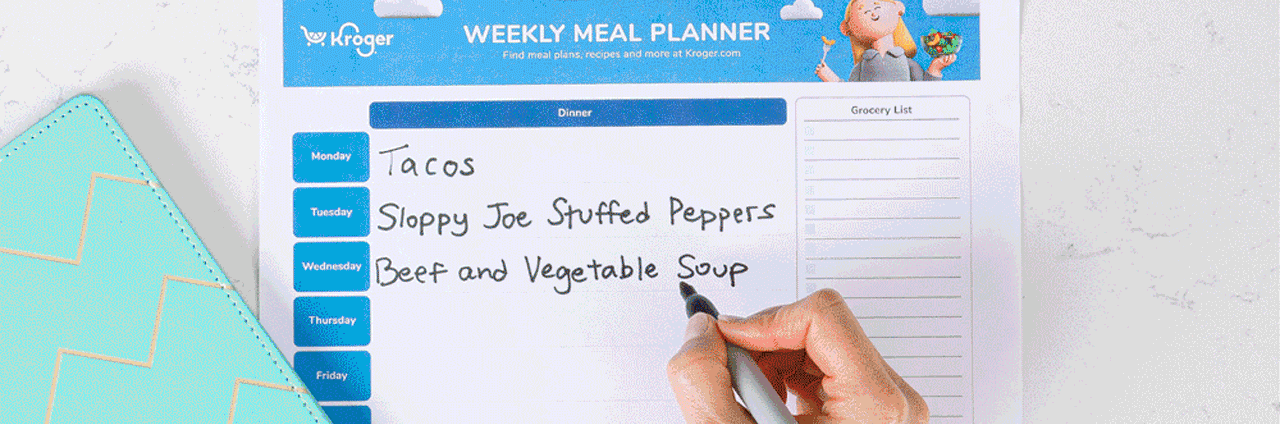 Kroger
WEEKLY MEAL PLANNER
Find meal plans, recipes and more at Kroger.com
Dinner
Grocery List
Monday
Tacos
Tuesday
Sloppy Joe Stuffed Peppers
Wednesday
Beef and Vegetable Soup
Thursday
Friday